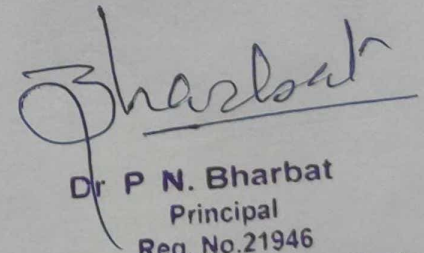 Bharbat
Dr P N. Bharbat
Principal
Reg. No.21946